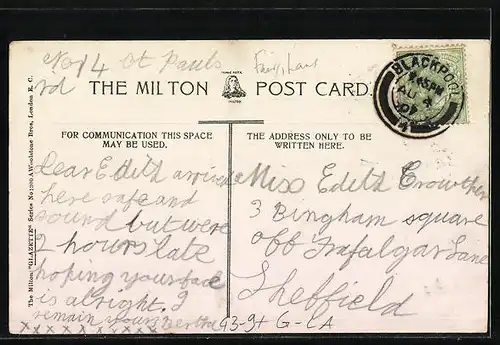 No 14 St Pauls
rd
THE MILTON POST CARD.
BLACKPOOL
AU 4
07
FOR COMMUNICATION THIS SPACE
MAY BE USED.
THE ADDRESS ONLY TO BE
WRITTEN HERE.
The Milton "GLAZETTE" Series No Woolstone Bros, London E.C.
Dear Edith arrived
here safe and
sound but were
2 hours late
hoping your face
is alright. I
remain yours Bertha
xxxxxxxxxx
Miss Edith Crowther
3 Bingham square
off Trafalgar Lane
Sheffield
G3-9+ G-LA